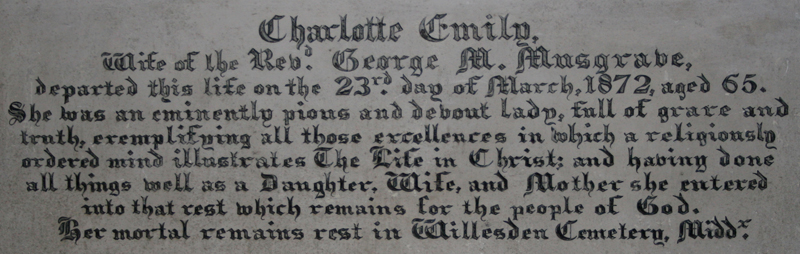 Charlotte Emily,
Wife of the Revd. George M. Musgrave,
departed this life on the 23rd. day of March, 1872, aged 65.
She was an eminently pious and devout lady, full of grace and
truth, exemplifying all those excellences in which a religiously
ordered mind illustrates The Life in Christ; and having done
all things well as a Daughter, Wife, and Mother she entered
into that rest which remains for the people of God.
Her mortal remains rest in Willesden Cemetery, Middx.